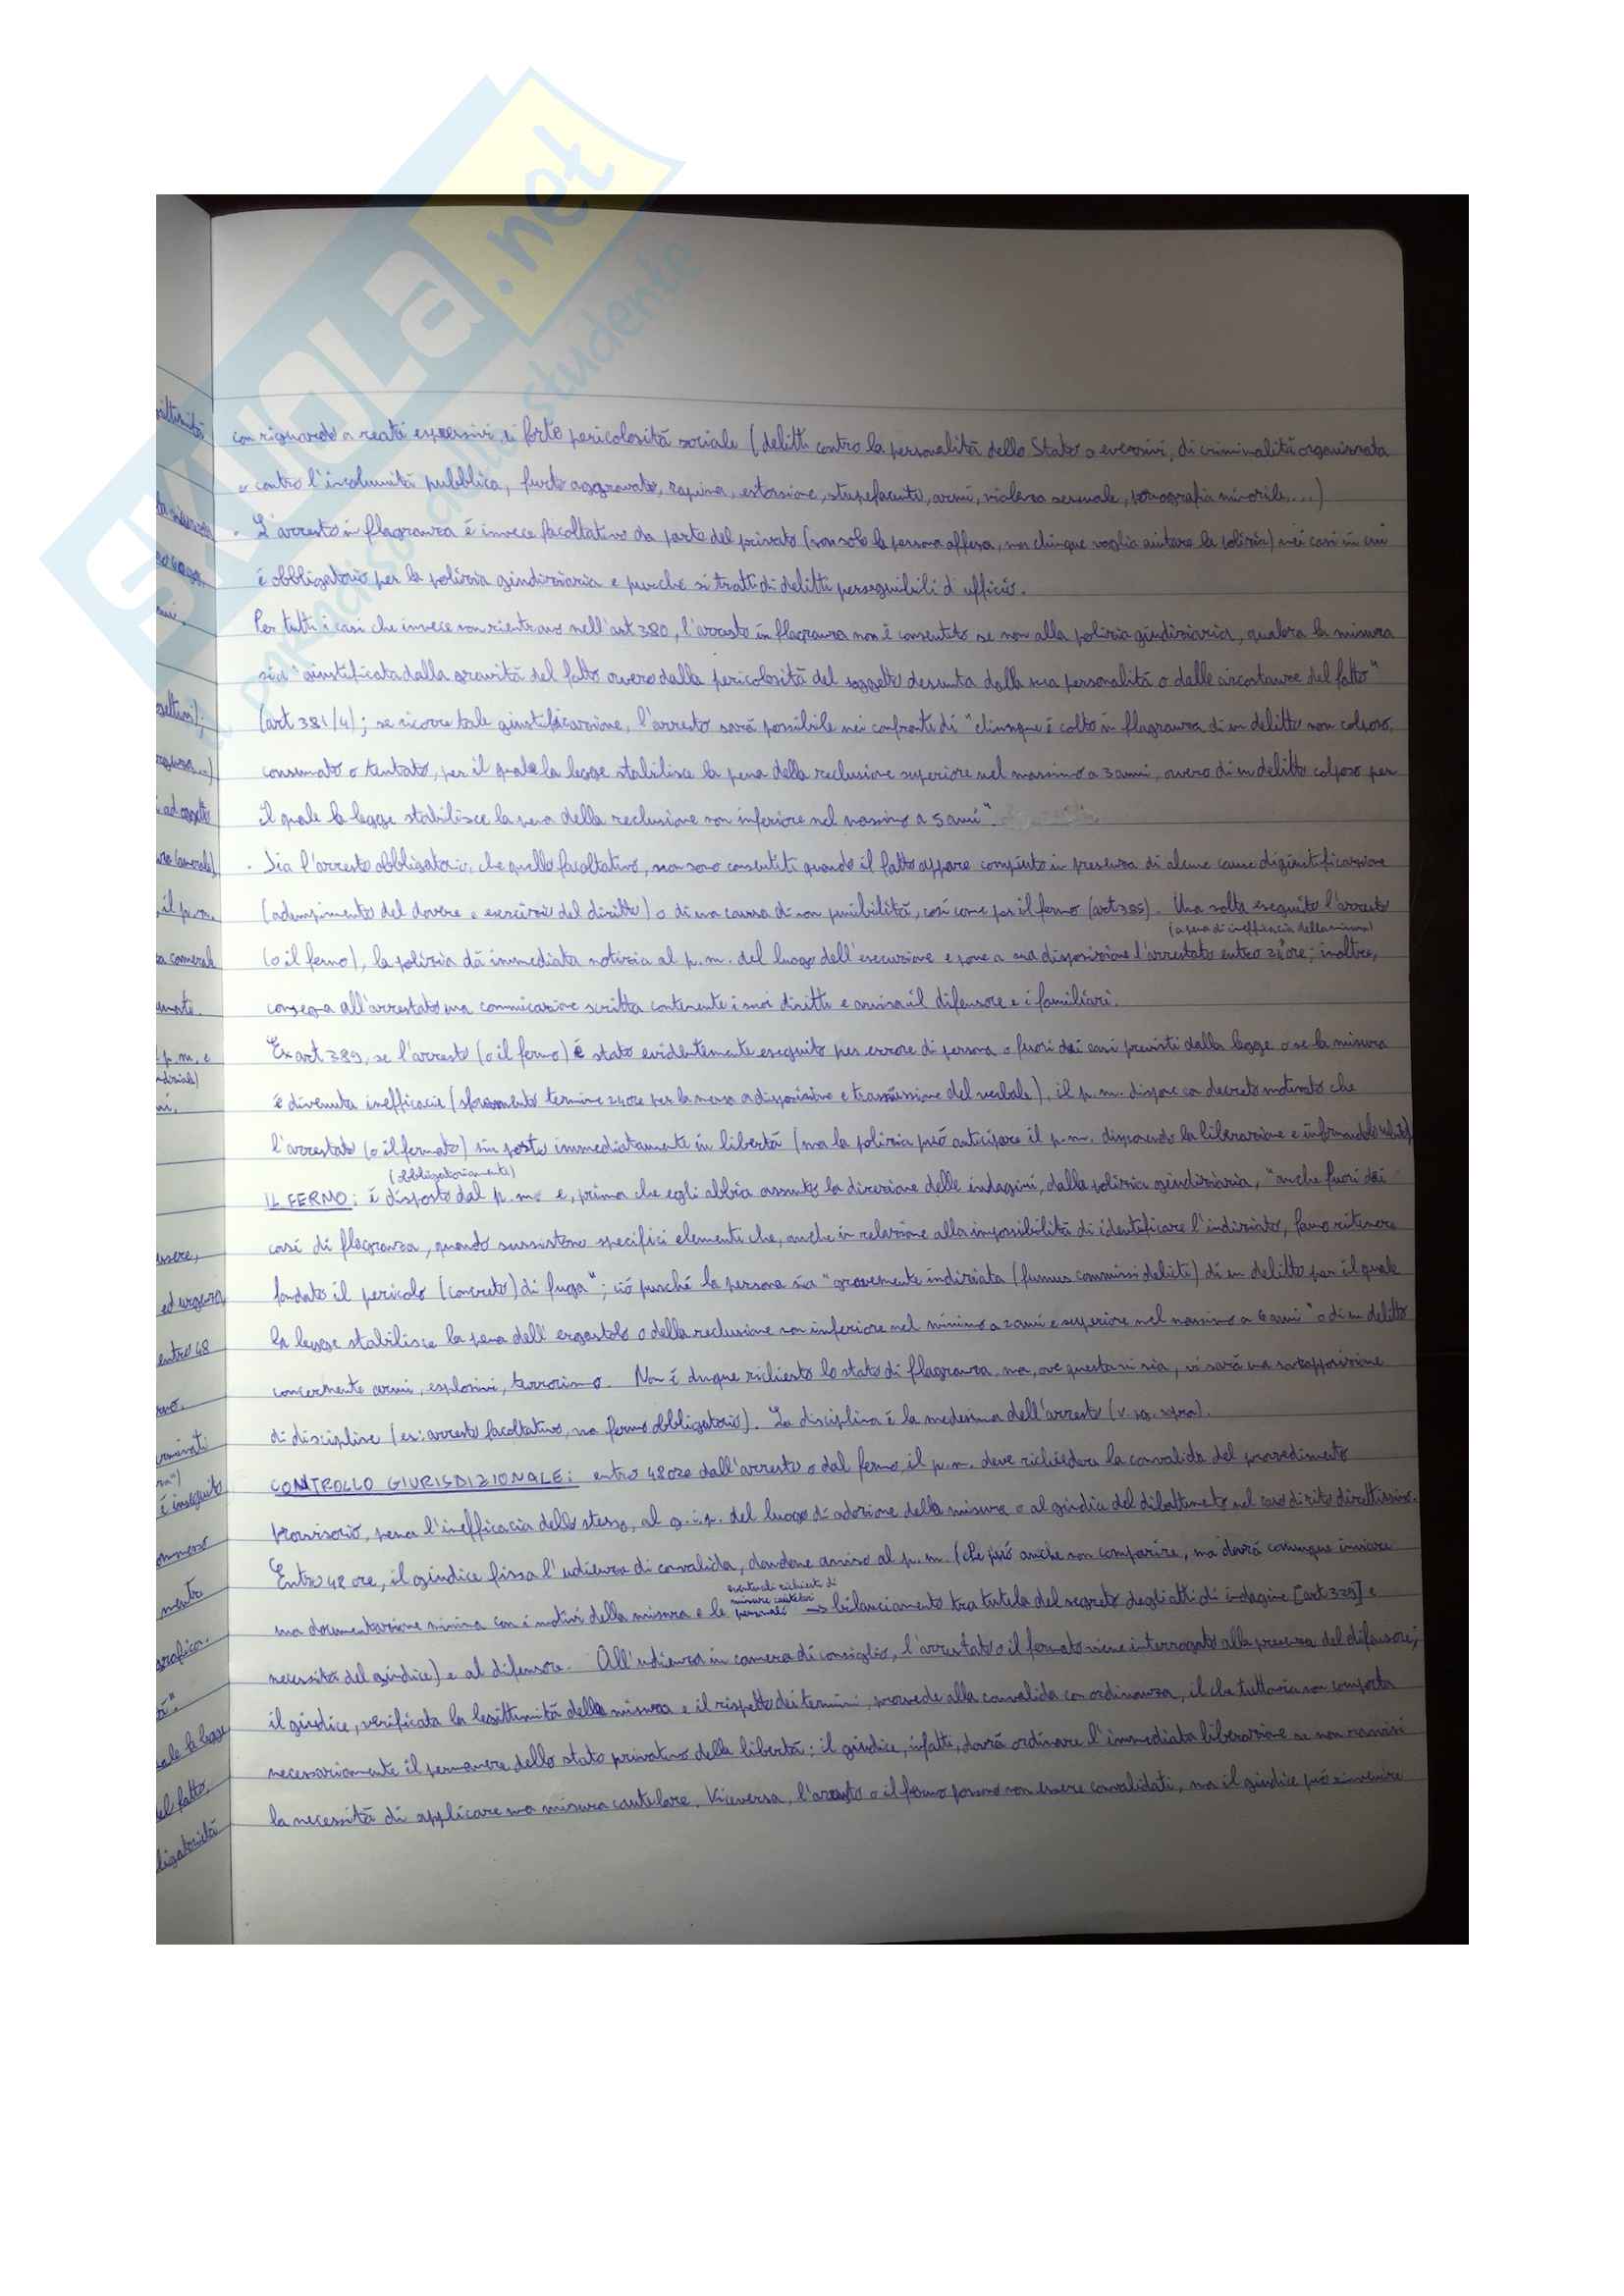 SKUOLA.net
con riguardo a reati espressivi di forte pericolosità sociale (delitti contro la personalità dello Stato o eversivi, di criminalità organizzata
o contro l'incolumità pubblica, furto aggravato, rapina, estorsione, stupefacenti, armi, violenza sessuale, pornografia minorile...)
· L'arresto in flagranza è invece facoltativo da parte del privato (non solo la persona offesa, ma chiunque voglia aiutare la polizia) nei casi in cui
è obbligatorio per la polizia giudiziaria e purché si tratti di delitti perseguibili d'ufficio.
Per tutti i casi che invece non rientrano nell'art 380, l'arresto in flagranza non è consentito se non alla polizia giudiziaria, qualora la misura
sia "giustificata dalla gravità del fatto ovvero dalla pericolosità del soggetto desunta dalla sua personalità o dalle circostanze del fatto"
(art 381/4); se ricorre tale giustificazione, l'arresto sarà possibile nei confronti di "chiunque è colto in flagranza di un delitto non colposo,
consumato o tentato, per il quale la legge stabilisce la pena della reclusione superiore nel massimo a 3 anni, ovvero di un delitto colposo per
il quale la legge stabilisce la pena della reclusione non inferiore nel massimo a 5 anni".
· Sia l'arresto obbligatorio, che quello facoltativo, non sono consentiti quando il fatto appare compiuto in presenza di alcune cause di giustificazione
(adempimento del dovere o esercizio del diritto) o di una causa di non punibilità, così come per il fermo (art 385). Una volta eseguito l'arresto
(a pena di inefficacia della misura)
(o il fermo), la polizia dà immediata notizia al p.m. del luogo dell'esecuzione e pone a sua disposizione l'arrestato entro 24 ore; inoltre,
consegna all'arrestato una comunicazione scritta contenente i suoi diritti e avvisa il difensore e i familiari.
Ex art 389, se l'arresto (o il fermo) è stato evidentemente eseguito per errore di persona o fuori dai casi previsti dalla legge o se la misura
è divenuta inefficace (sforamento termine 24 ore per la messa a disposizione e trasmissione del verbale), il p.m. dispone con decreto motivato che
l'arrestato (o il fermato) sia posto immediatamente in libertà (ma la polizia può anticipare il p.m. disponendo la liberazione e informandolo subito)
(obbligatoriamente)
IL FERMO: è disposto dal p.m. e, prima che egli abbia assunto la direzione delle indagini, dalla polizia giudiziaria, "anche fuori dai
casi di flagranza, quando sussistono specifici elementi che, anche in relazione alla impossibilità di identificare l'indiziato, fanno ritenere
fondato il pericolo (concreto) di fuga"; ciò purché la persona sia "gravemente indiziata (fumus commissi delicti) di un delitto per il quale
la legge stabilisce la pena dell'ergastolo o della reclusione non inferiore nel minimo a 2 anni e superiore nel massimo a 6 anni" o di un delitto
concernente armi, esplosivi, terrorismo. Non è dunque richiesto lo stato di flagranza, ma, ove questa vi sia, vi sarà una sovrapposizione
di discipline (es: arresto facoltativo, ma fermo obbligatorio). La disciplina è la medesima dell'arresto (v. pg. sopra).
CONTROLLO GIURISDIZIONALE: entro 48 ore dall'arresto o dal fermo, il p.m. deve richiedere la convalida del provvedimento
provvisorio, pena l'inefficacia dello stesso, al g.i.p. del luogo di adozione della misura o al giudice del dibattimento nel caso di rito direttissimo.
Entro 48 ore, il giudice fissa l'udienza di convalida, dandone avviso al p.m. (che può anche non comparire, ma dovrà comunque inviare
eventuali richieste di
misure cautelari
una documentazione minima con i motivi della misura e le personali → bilanciamento tra tutela del segreto degli atti di indagine [art 329] e
necessità del giudice) e al difensore. All'udienza in camera di consiglio, l'arrestato o il fermato viene interrogato alla presenza del difensore;
il giudice, verificata la legittimità della misura e il rispetto dei termini, provvede alla convalida con ordinanza, il che tuttavia non comporta
necessariamente il permanere dello stato privativo della libertà: il giudice, infatti, dovrà ordinare l'immediata liberazione se non ravvisi
la necessità di applicare una misura cautelare. Viceversa, l'arresto o il fermo possono non essere convalidati, ma il giudice può rinvenire